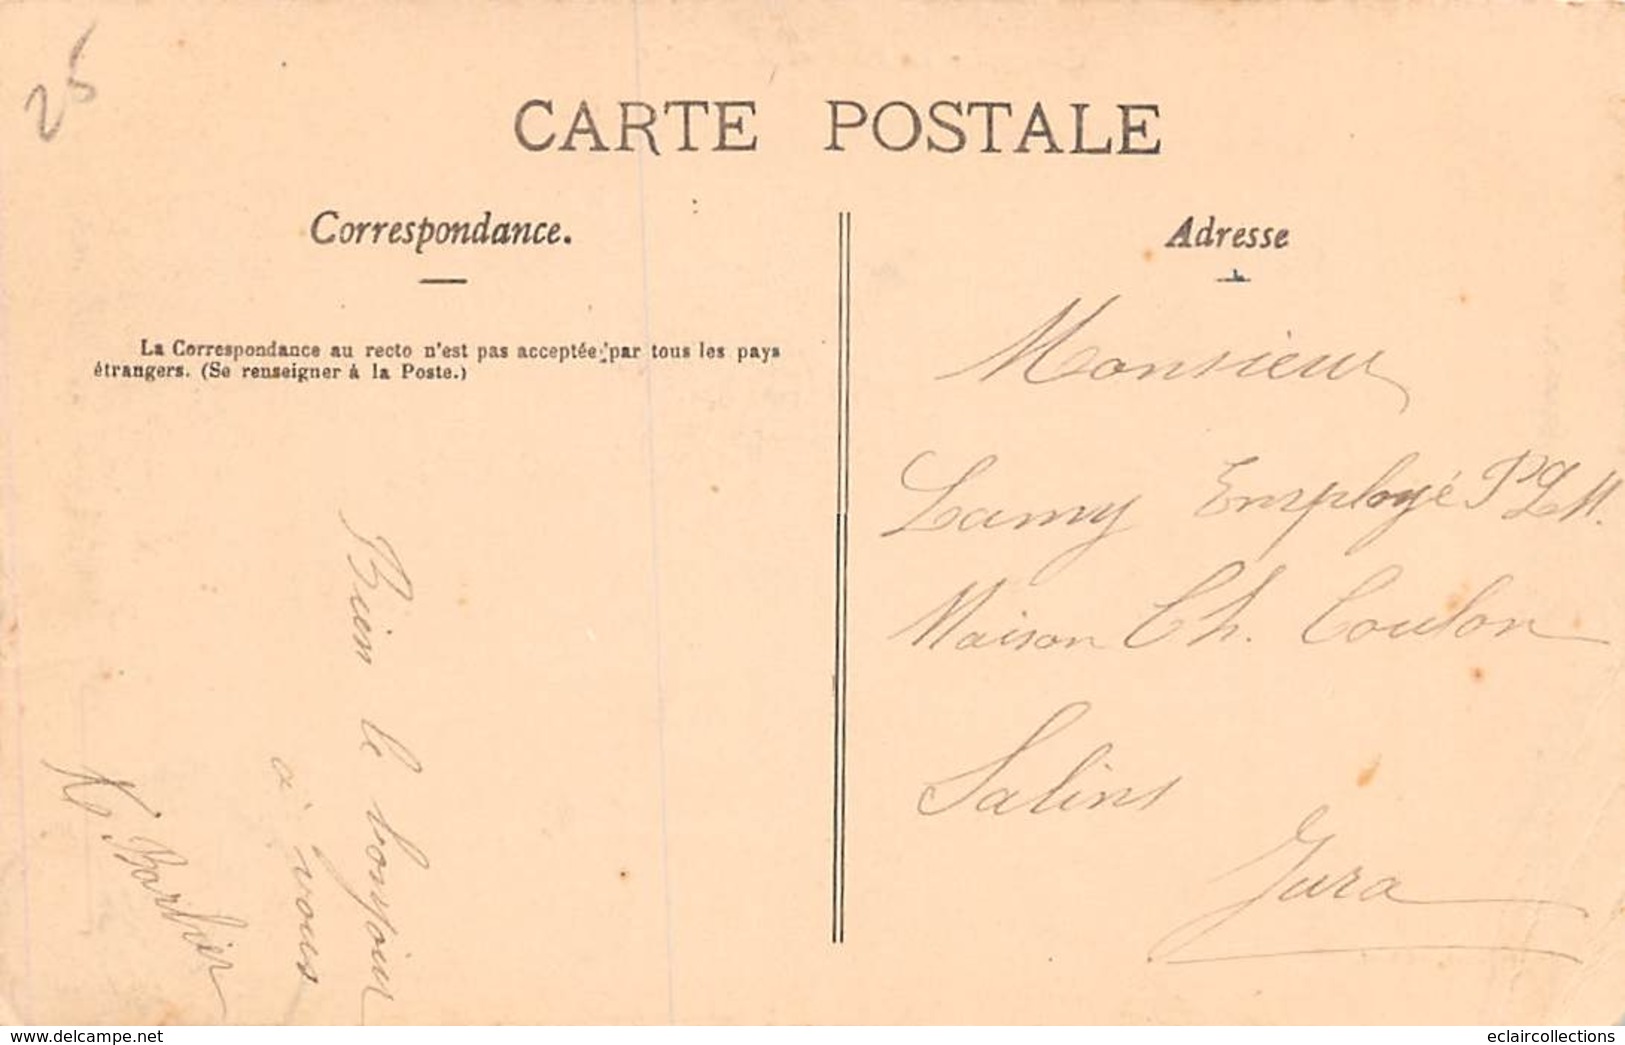 25
CARTE POSTALE
Correspondance.
La Correspondance au recto n'est pas acceptée par tous les pays
étrangers. (Se renseigner à la Poste.)
Bien le bonjour
à vous
Barbier
Adresse
Monsieur
Lamy Employé PLM.
Maison Ch. Coulon
Salins
Jura
www.delcampe.net
eclaircollections